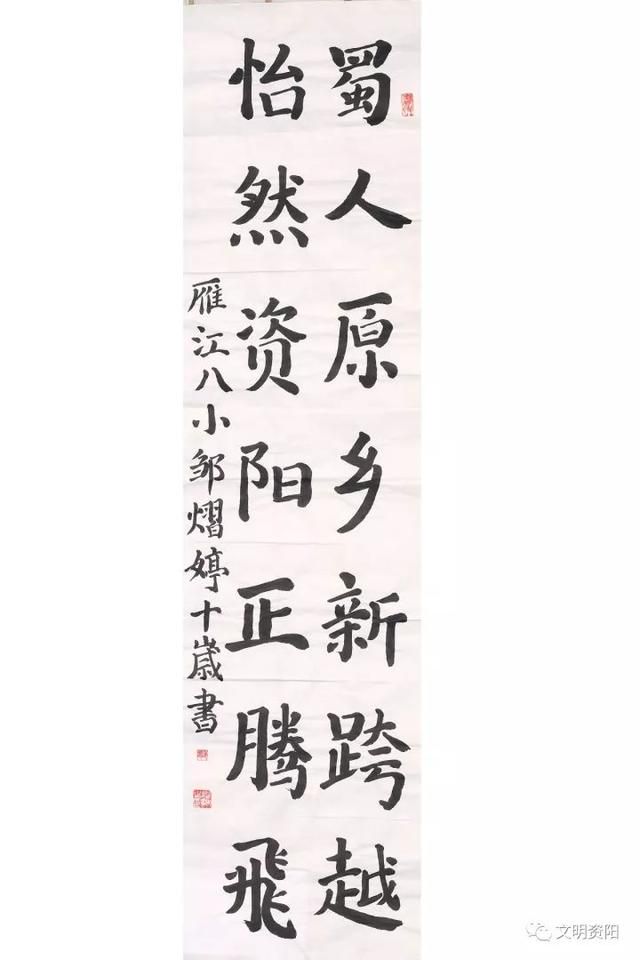 蜀人原乡新跨越
怡然资阳正腾飛
雁江八小邹熠婷十歲書
文明资阳